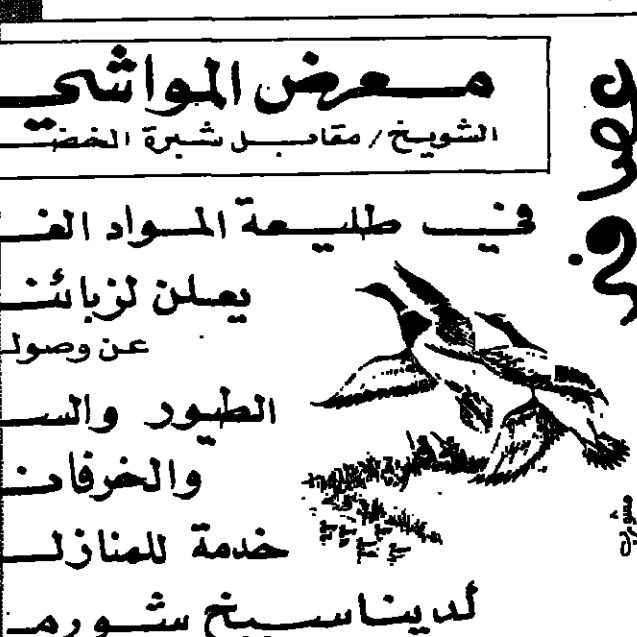 معرض المواشي
الشويخ / مقابل شبرة الخضـ
في طليعة المواد الغـ
يعلن لزبائنـ
عن وصولـ
الطيور والسـ
والخرفان
خدمة للمنازل
لدينا سيخ شورمـ